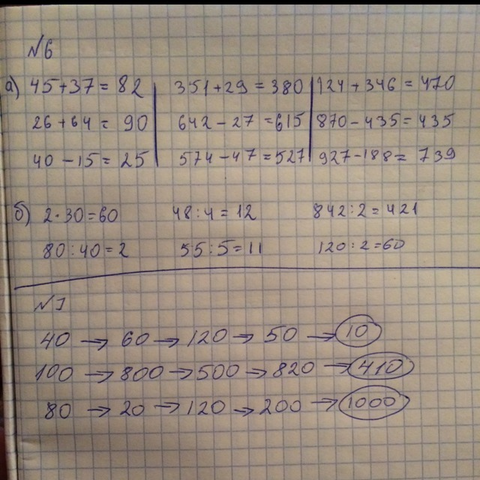 №6
а) 45+37=82 351+29=380 124+346=470
26+64=90 642-27=615 870-435=435
40-15=25 574-47=527 927-188=739
б) 2·30=60 48:4=12 842:2=421
80:40=2 55:5=11 120:2=60
№7
40 → 60 → 120 → 50 → 10
100 → 800 → 500 → 820 → 410
80 → 20 → 120 → 200 → 1000